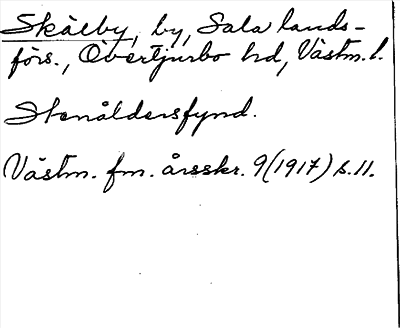 Skälby, by, Sala lands-
förs., Övertjurbo hd, Västm. l.
Stenåldersfynd.
Västm. fm. årsskr. 9(1917) s. 11.